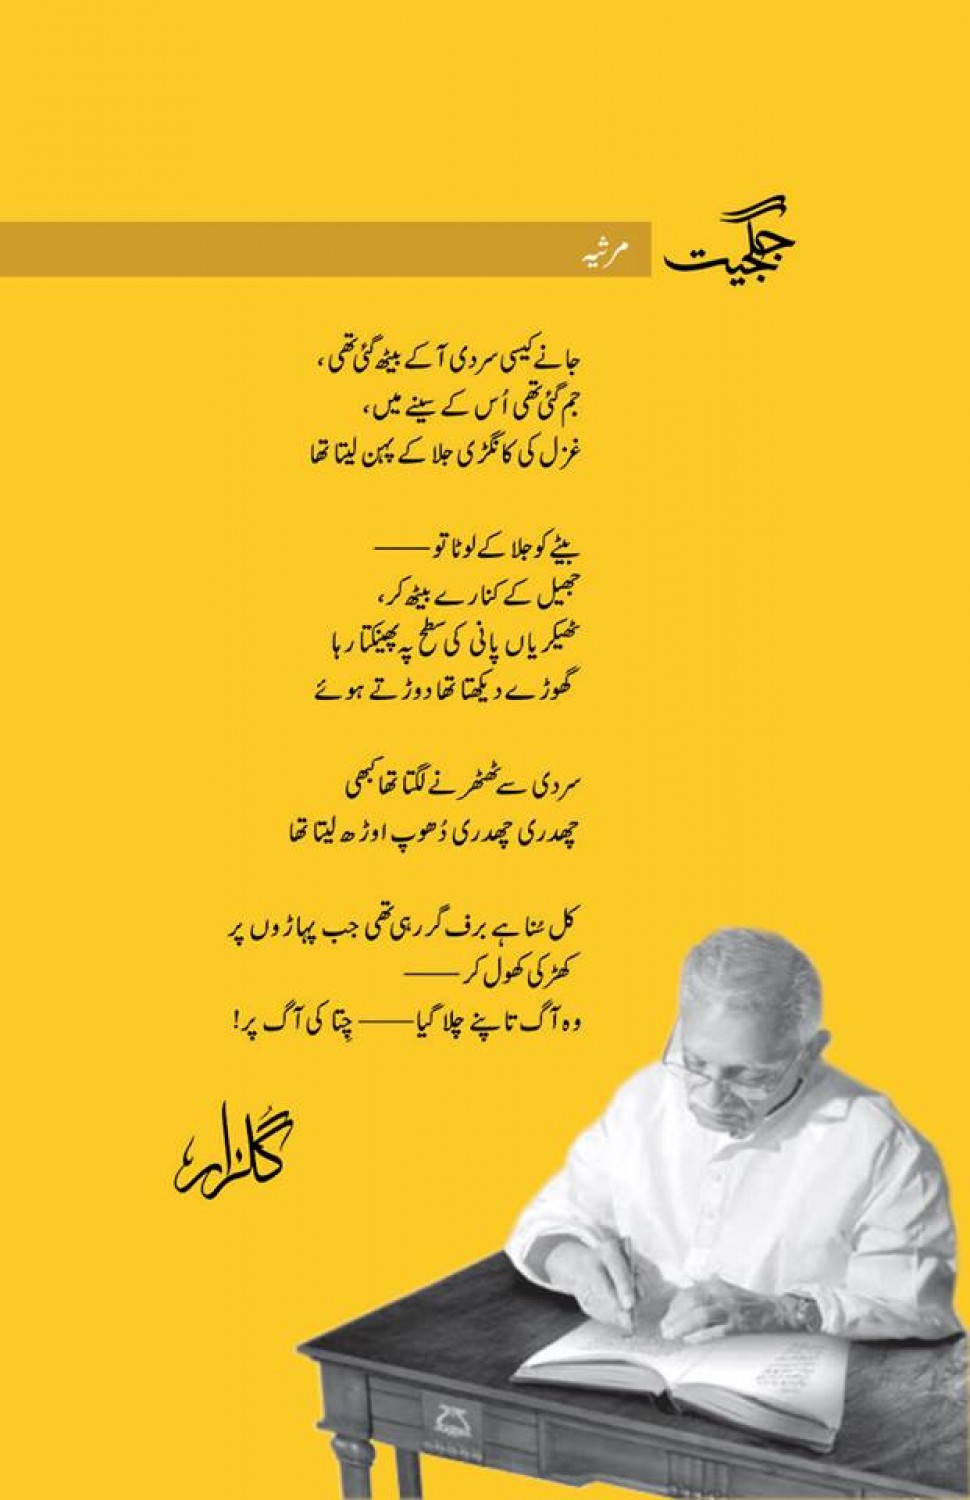 جگجیت
مرثیہ
جانے کیسی سردی آ کے بیٹھ گئی تھی،
جم گئی تھی اُس کے سینے میں،
غزل کی کانگڑی جلا کے پہن لیتا تھا
بیٹے کو جلا کے لوٹا تو ——
جھیل کے کنارے بیٹھ کر،
ٹھیکریاں پانی کی سطح پہ پھینکتا رہا
گھوڑے دیکھتا تھا دوڑتے ہوئے
سردی سے ٹھٹھرنے لگتا تھا کبھی
چھدری چھدری دُھوپ اوڑھ لیتا تھا
کل سُنا ہے برف گر رہی تھی جب پہاڑوں پر
کھڑکی کھول کر ——
وہ آگ تاپنے چلا گیا —— چِتا کی آگ پر!
گُلزار